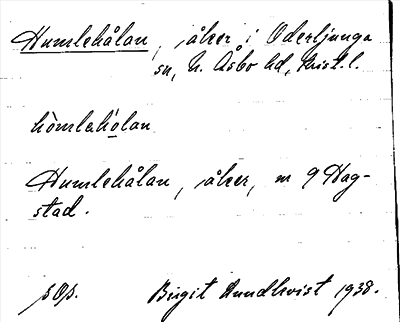 Humlehålan, åker i Oderljunga
sn, N. Åsbo hd, Krist. l.
hòmlehólan
Humlehålan, åker, m 9 Hag-
stad.
s Os. Birgit Lundkvist 1938.